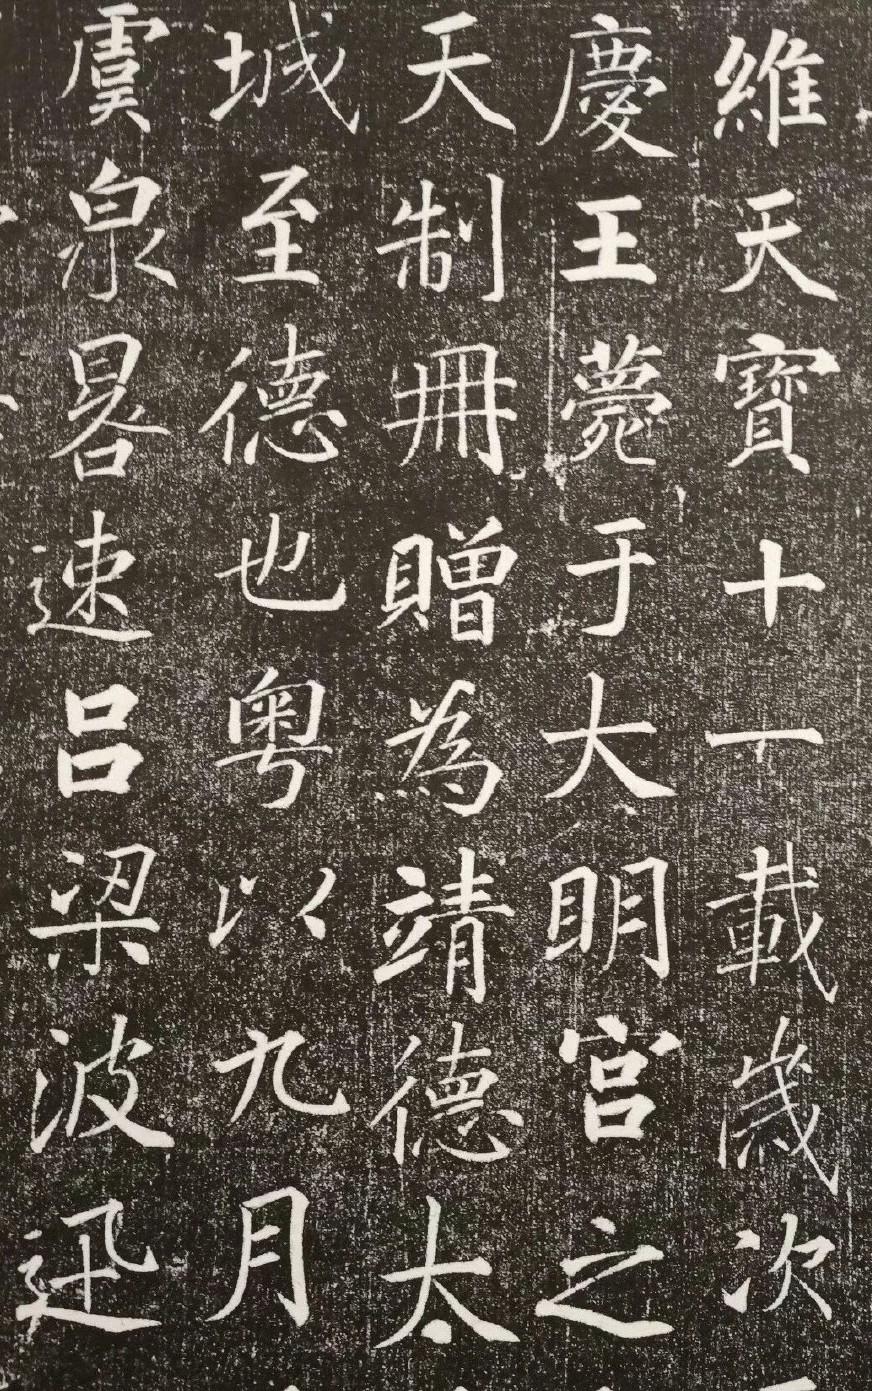 維天寶十一載歲次
慶王薨于大明宮之
天制冊贈為靖德太
城至德也粵以九月
虞泉晷速呂梁波迅